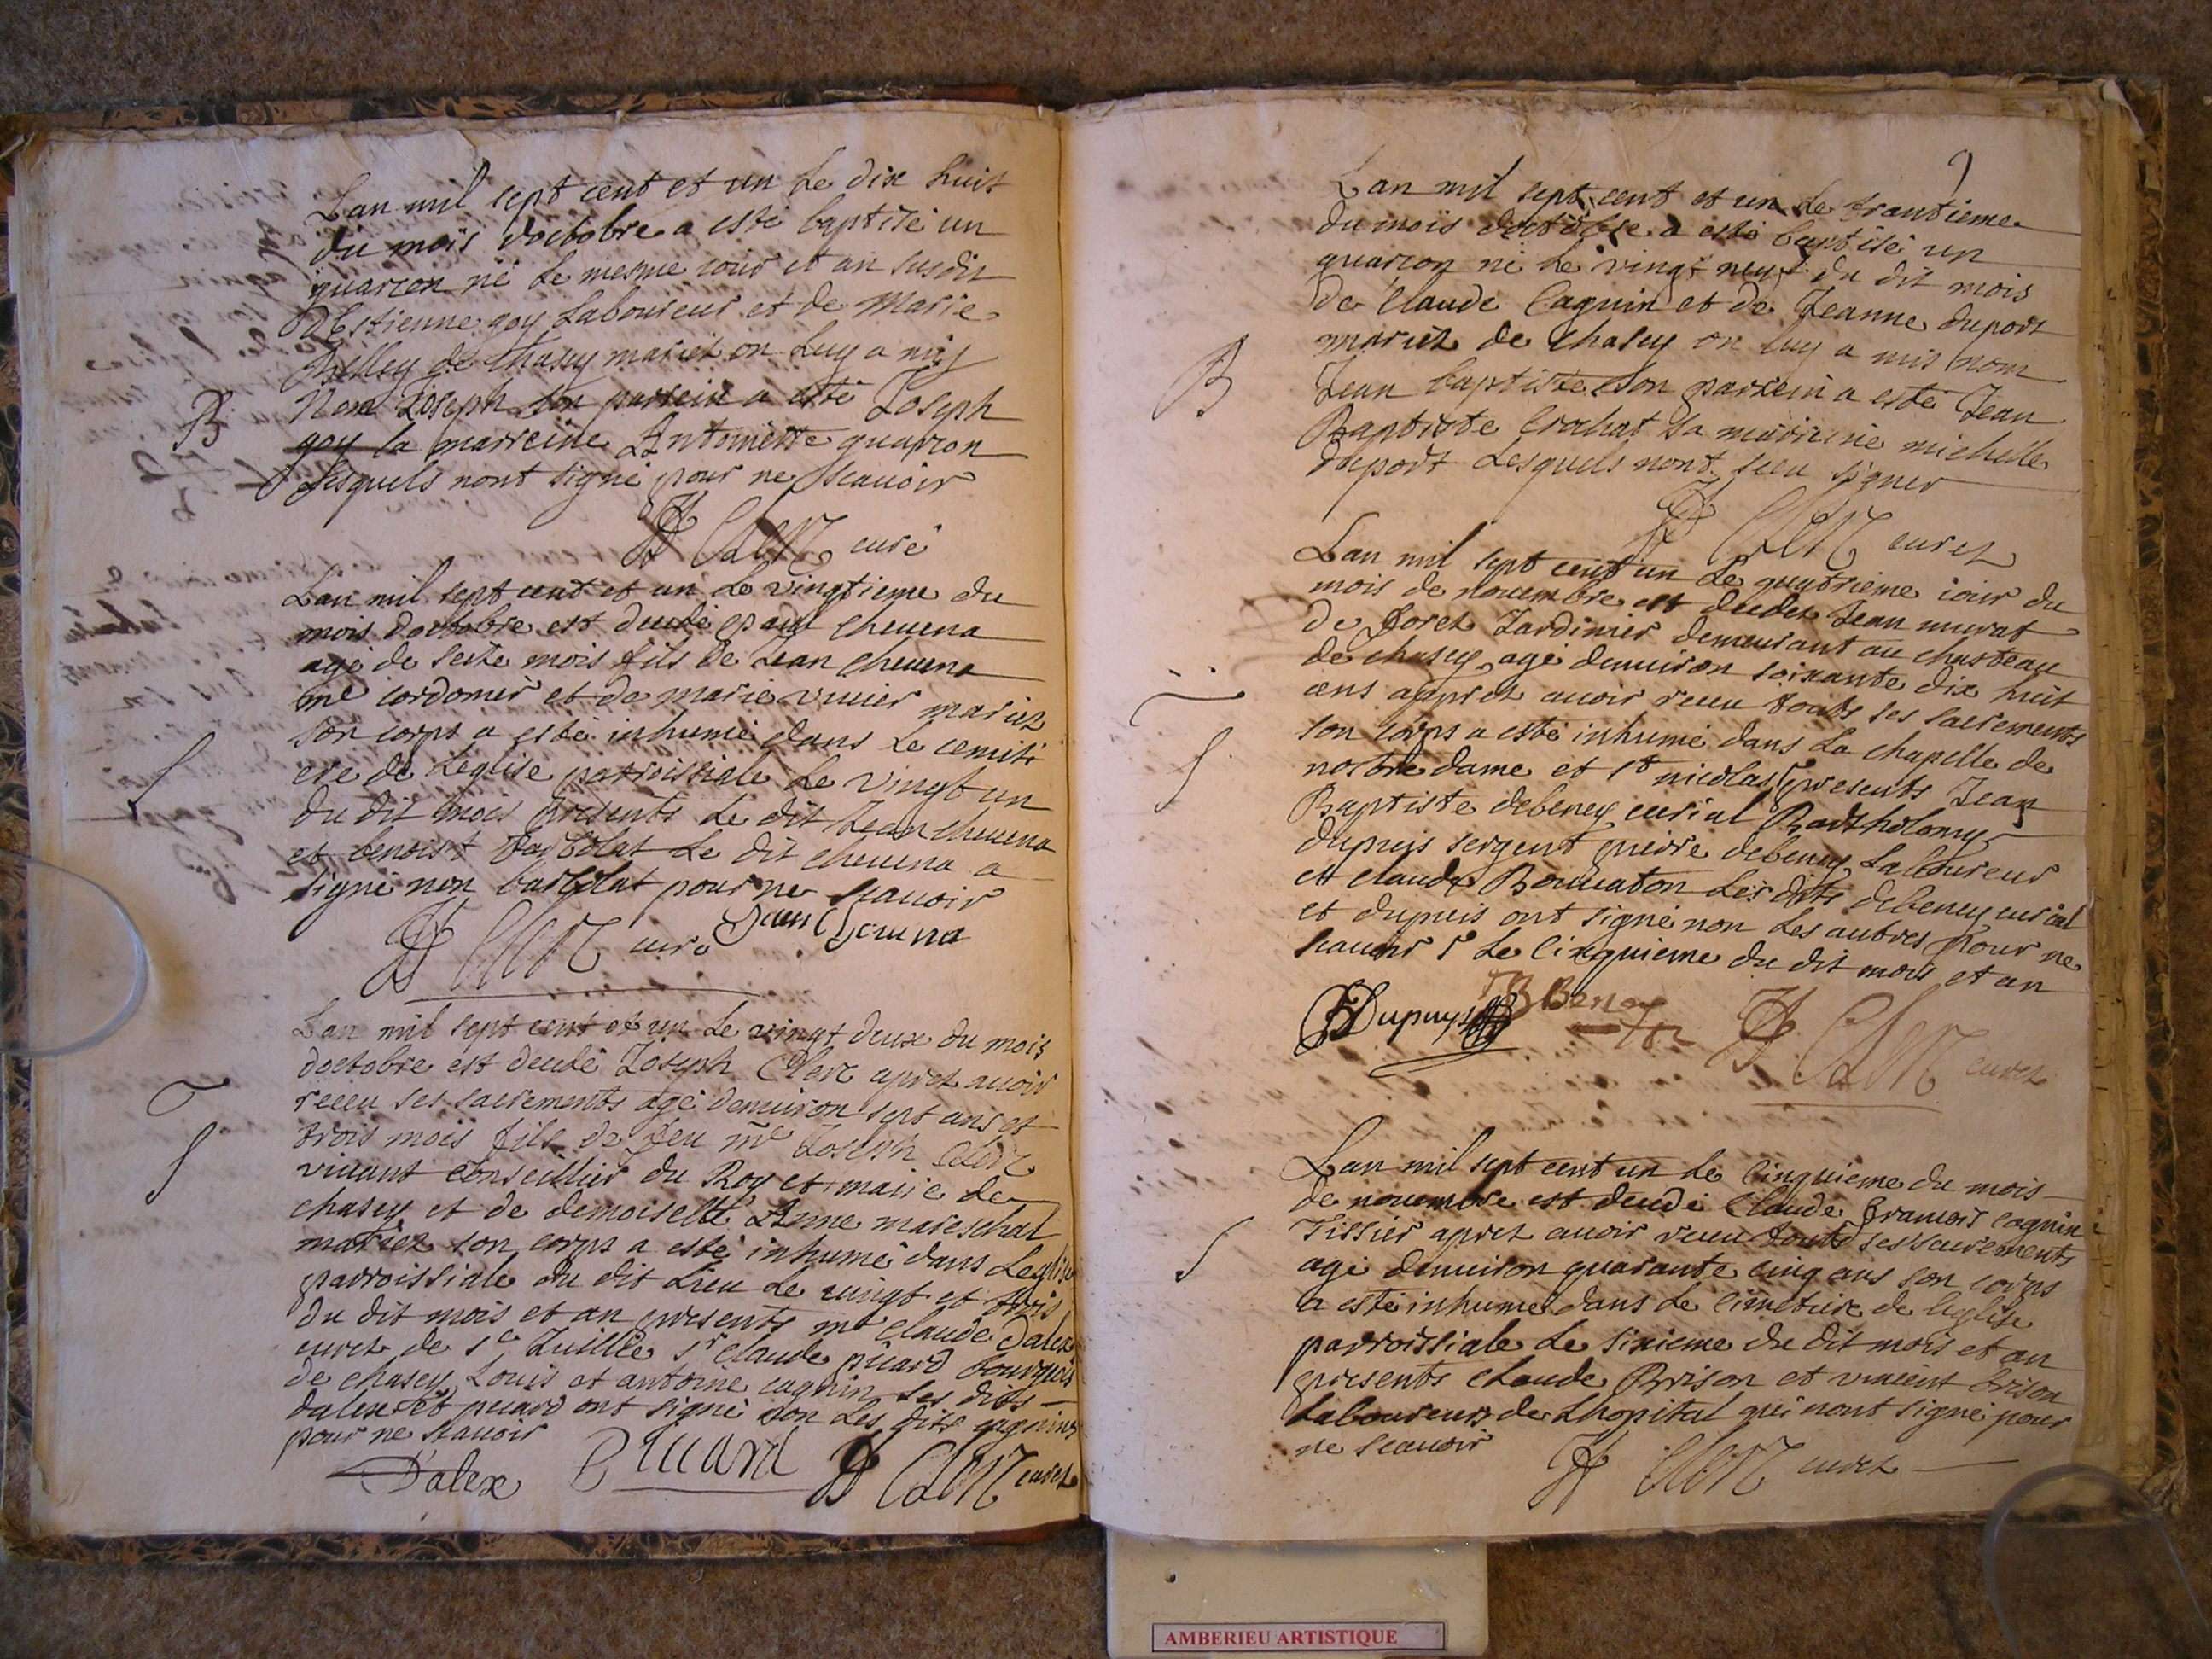 Lan mil sept cent et un Le dix huit
du mois doctobre a esté baptisé un
guarcon né Le mesme iour et an susdit
dEstienne goy Laboureur et de Marie
de Chasey mariez on Luy a mis
Nom Ioseph son parrein a esté Ioseph
goy la marreine Antoinette guarzon
Lesquels nont signé pour ne scauoir
B
Clerc curé
Lan mil sept cent et un Le vingtieme du
mois doctobre est decedé paul cheuena
agé de seite mois fils de Iean cheuena
me cordonier et de marie viuier mariez
son corps a esté inhumé dans Le cemiti
ere de Leglise parroissiale Le vingt un
du dit mois presents Le dit Iean cheuena
et benoist barcolat Le dit cheuena a
signé non barcolat pour ne scauoir
S
Clerc curé Jean
Lan mil sept cent et un Le vingt deux du mois
doctobre est decedé Ioseph Clerc aprez auoir
receu ses sacrements agé denuiron sept ans et
trois mois fils de feu me Ioseph Clerc
viuant conseillier du Roy et maire de
chasey et de demoiselle Anne mareschal
mariez son corps a esté inhumé dans Leglise
parroissiale du dit Lieu Le vingt et trois
du dit mois et an presents mre claude Dalex
curez de ste Iuillie sr claude picard bourgois
de chasey Louis et antoine cagnin Les dits
dalex et picard ont signé non Les dits cagnins
pour ne scauoir
S
Dalex Picard Clerc curez
9
Lan mil sept cent et un Le trantieme
du mois doctobre a esté baptisé un
guarcon né Le vingt neuf du dit mois
de Claude Cagnin et de Jeanne duport
mariez de Chasey on luy a mis nom
Jean baptiste son parrein a esté Jean
Baptiste Crochat sa marreine michelle
duport Lesquels nont sceu signer
B
Clerc curez
Lan mil sept cent un Le quatrieme iour du
mois de nouembre est decedez Jean murat
de forez Iardinier demeurant au chasteau
de chasey agé denuiron soixante dix huit
ans apprez auoir receu touts ses sacrements
son corps a esté inhumé dans La chapelle de
nostre dame et st nicolas presents Jean
Baptiste debeney curial Barthelomy
dupuis sergent pierre debeney Laboureur
et claude Les dits debeney curial
et dupuis ont signé non Les autres pour ne
scauoir Le Cinquieme du dit mois et an
S
Dupuys Clerc curez
Lan mil sept cent un Le Cinquieme du mois
de nouembre est decedé Claude francois cagnin
Tissier aprez auoir receu touts ses sacrements
agé denuiron quarante cinq ans son corps
a esté inhumé dans Le cimetiere de leglise
parroissiale Le sixieme du dit mois et an
presents claude Brison et vincent brison
Laboureurs de Lhopital qui nont signé pour
ne scauoir
S
Clerc curez
AMBERIEU ARTISTIQUE